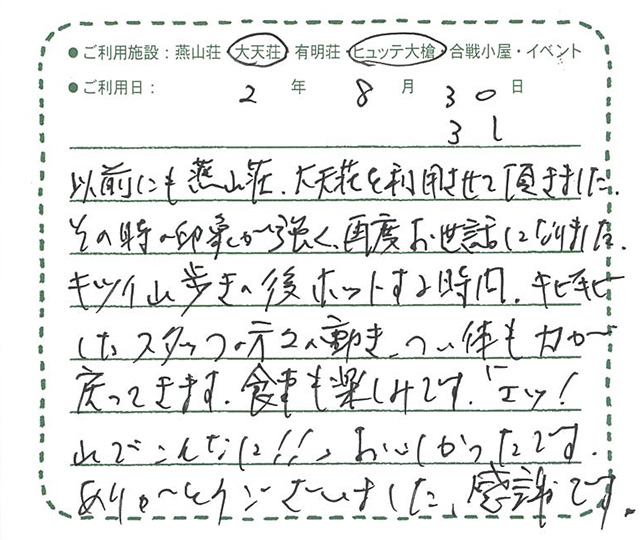 ●ご利用施設：燕山荘・大天荘・有明荘・ヒュッテ大槍・合戦小屋・イベント
●ご利用日： 2 年 8 月 30 日
31
以前にも燕山荘、大天荘を利用させて頂きました。
その時の印象が強く、再度お世話になりました。
キツイ山歩きの後ホットする時間、キビキビ
したスタッフの方々の動き、つい体も力が
戻ってきます。食事も楽しみです。「エッ！
山でこんなに！！」おいしかったです。
ありがとうございました、感謝です。